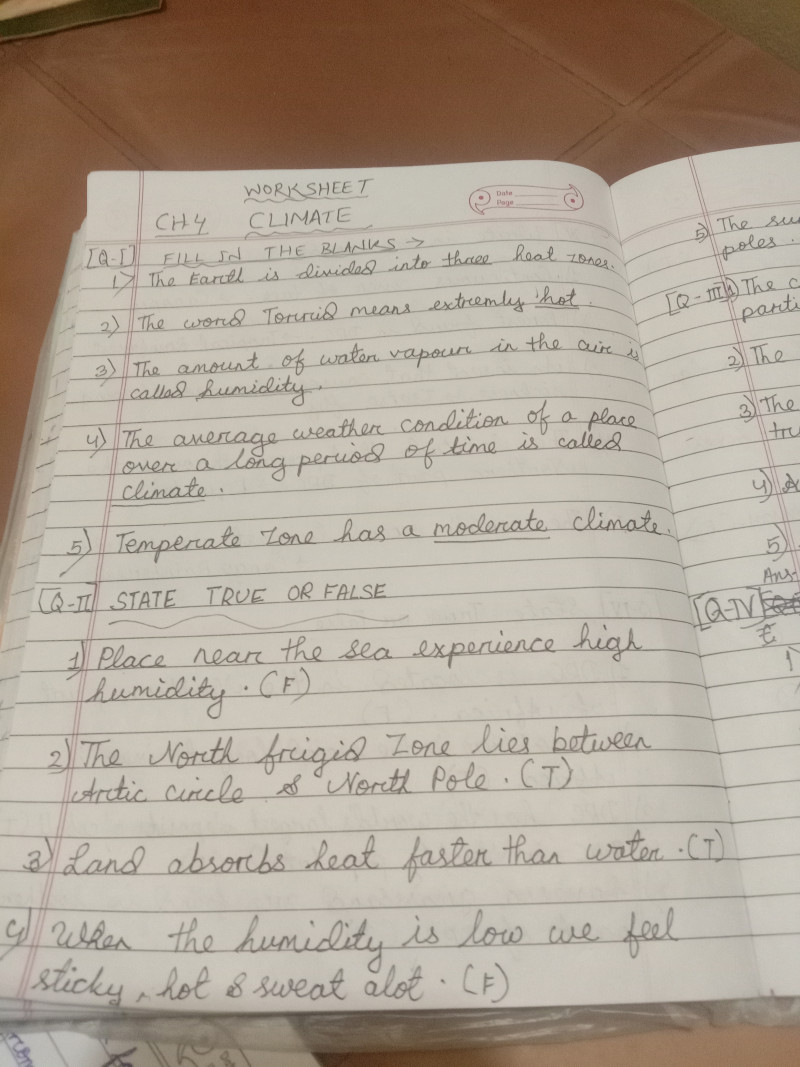 WORKSHEET
Date
Page
CH4 CLIMATE
[Q-I] FILL IN THE BLANKS →
1) The Earth is divided into three heat zones.
2) The word Torrid means extremly hot.
3) The amount of water vapour in the air is
called humidity.
4) The average weather condition of a place
over a long period of time is called
climate.
5) Temperate Zone has a moderate climate.
[Q-II] STATE TRUE OR FALSE
1) Place near the sea experience high
humidity. (F)
2) The North frigid Zone lies between
Arctic circle & North Pole. (T)
3) Land absorbs heat faster than water. (T)
4) When the humidity is low we feel
sticky, hot & sweat alot. (F)
5) The
poles.
[Q-III] 1) The
2) The
3) The
4)
5)
Ans-
[Q-IV]
1)